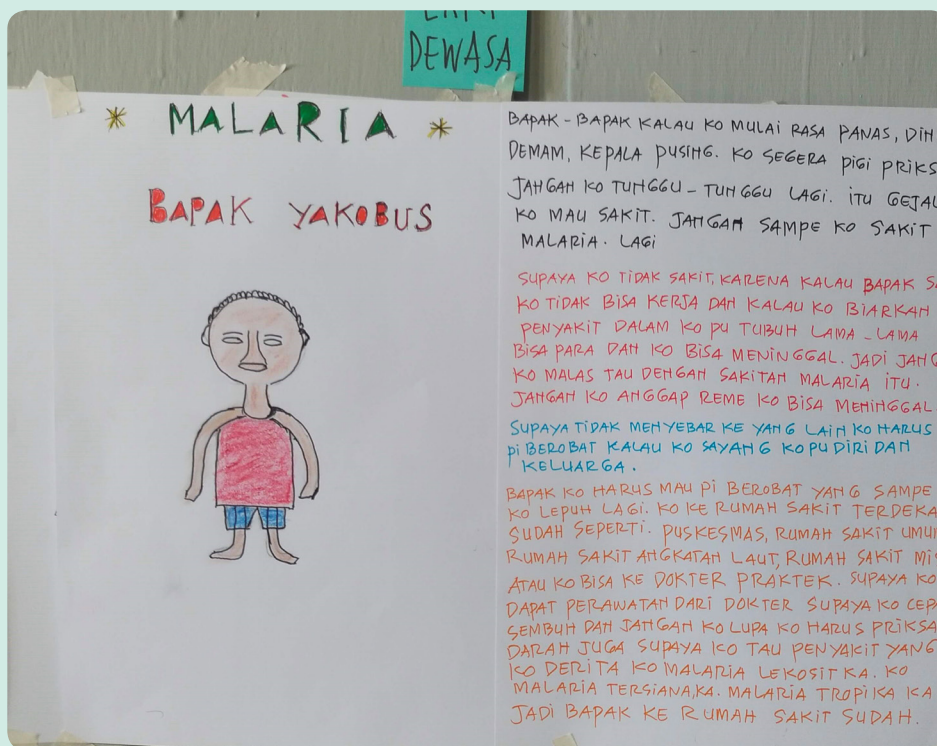 DEWASA
* MALARIA *
BAPAK YAKOBUS
BAPAK - BAPAK KALAU KO MULAI RASA PANAS,
DEMAM, KEPALA PUSING. KO SEGERA PIGI
JANGAN KO TUNGGU - TUNGGU LAGI. ITU
KO MAU SAKIT. JANGAN SAMPE KO SAKIT
MALARIA. LAGI
SUPAYA KO TIDAK SAKIT, KARENA KALAU BAPAK
KO TIDAK BISA KERJA DAN KALAU KO BIARKAN
PENYAKIT DALAM KO PU TUBUH LAMA - LAMA
BISA PARA DAN KO BISA MENINGGAL. JADI
KO MALAS TAU DENGAN SAKITAN MALARIA ITU.
JANGAN KO ANGGAP REME KO BISA MENINGGAL
SUPAYA TIDAK MENYEBAR KE YANG LAIN KO HARUS
PI BEROBAT KALAU KO SAYANG KO PU DIRI DAN
KELUARGA.
BAPAK KO HARUS MAU PI BEROBAT YANG SAMPE
KO LEPUH LAGI. KO KE RUMAH SAKIT
SUDAH SEPERTI. PUSKESMAS, RUMAH SAKIT
RUMAH SAKIT ANGKATAN LAUT, RUMAH SAKIT
ATAU KO BISA KE DOKTER PRAKTEK. SUPAYA KO
DAPAT PERAWATAN DARI DOKTER SUPAYA KO
SEMBUH DAN JANGAN KO LUPA KO HARUS PRIKSA
DARAH JUGA SUPAYA KO TAU PENYAKIT YANG
KO DERITA KO MALARIA LEKOSIT KA. KO
MALARIA TERSIANA,KA. MALARIA TROPIKA KA
JADI BAPAK KE RUMAH SAKIT SUDAH.